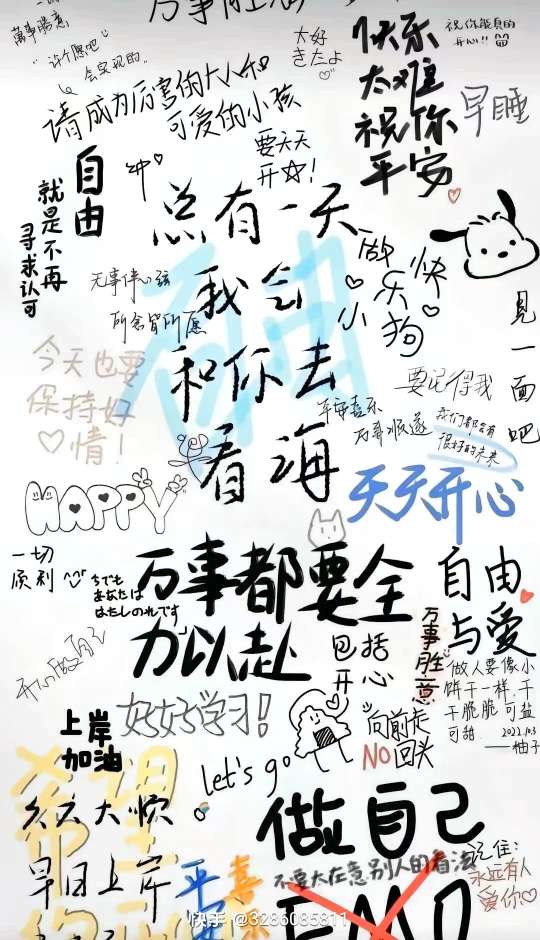 萬事勝意
许个愿吧
会实现的..
请成为厉害的大人和
可爱的小孩
太好
きたよ
快乐
太难
祝你
平安
祝你能真的
开心!!
早睡
要天天
开☆!
自由
就是不再
寻求认可
总有一天
我会
和你去
看海
自由
做快
乐
小狗
见一面吧
所念皆所愿
今天也要
保持好
心情!
要记得我
平安喜乐
万事顺遂
我们都会有
很好的未来
HAPPY
天天开心
一切
顺利
万事都要全
力以赴
包括
开心
自由
与爱
万事胜意
做人要像小
饼干一样,干
干脆脆可盐
可甜.
2022.10.3
——柚子
开心做自己
上岸
加油
好好学习!
向前走
NO回头
Let's go
希望
六六大顺
早日上岸
平安
喜
做自己
不要太在意别人的看法
EMO
记住:
永远有人
爱你♡
快手 @3286085811